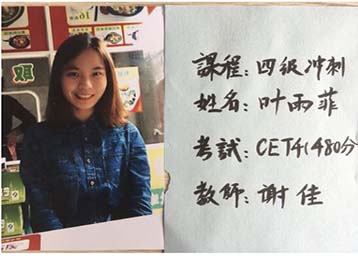 双
課程:四级冲刺
姓名:叶雨菲
考試:CET4(480分
教師:谢佳